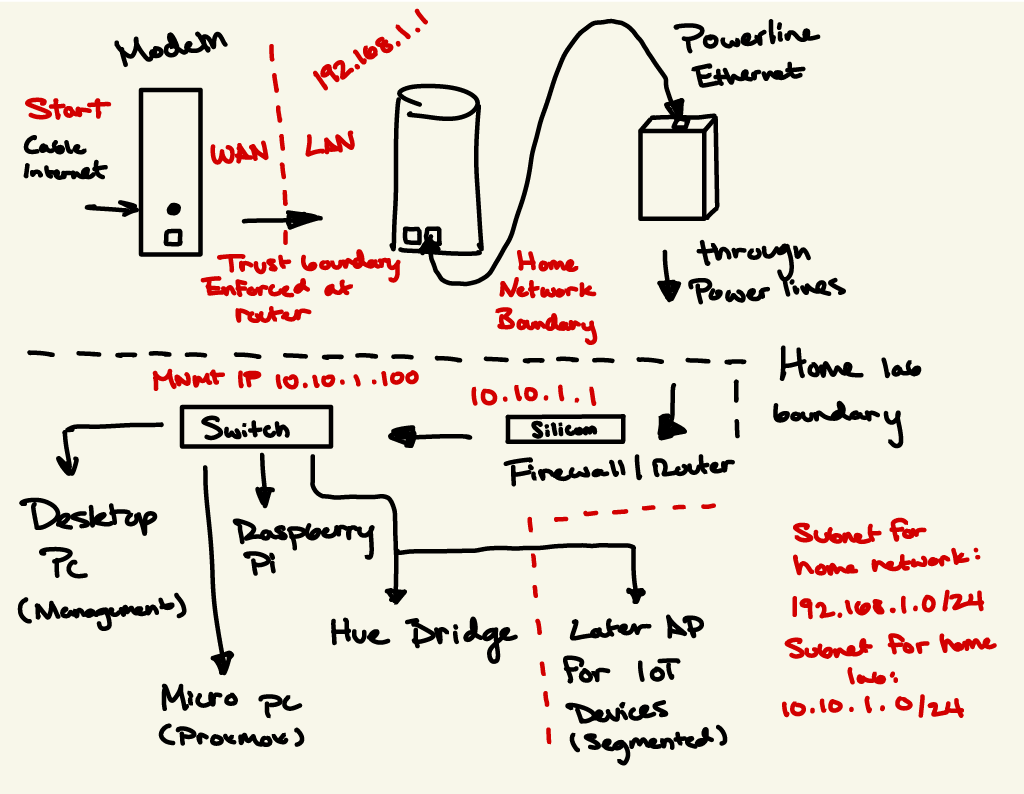 Modem
192.168.1.1
Powerline
Ethernet
Start
Cable
Internet
WAN
LAN
Trust boundary
Enforced at
router
Home
Network
Boundary
through
Power lines
Home lab
boundary
MNMT IP 10.10.1.100
10.10.1.1
Switch
Silicom
Firewall/Router
Desktop
PC
(Management)
Raspberry
Pi
Hue Bridge
Later AP
For IoT
Devices
(Segmented)
Micro PC
(Proxmox)
Subnet for
home network:
192.168.1.0/24
Subnet for home
lab:
10.10.1.0/24